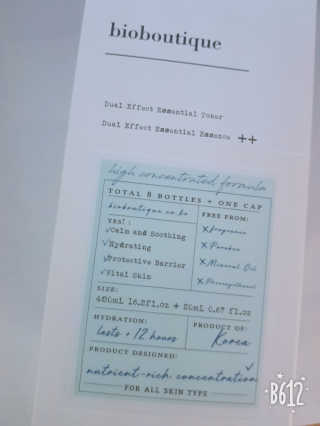 bioboutique
Dual Effect Essential Toner
Dual Effect Essential Essence ++
high concentrated formula
TOTAL 8 BOTTLES + ONE CAP
bioboutique.co.kr
YES! :
✓Calm and Soothing
✓Hydrating
✓Protective Barrier
✓Vital Skin
FREE FROM:
×Fragrance
×Paraben
×Mineral Oil
×Phenoxyethanol
SIZE:
480ml 16.2fl.oz + 20ml 0.67 fl.oz
HYDRATION:
lasts + 12 hours
PRODUCT OF:
Korea
PRODUCT DESIGNED:
nutrient-rich concentration
FOR ALL SKIN TYPE
B612